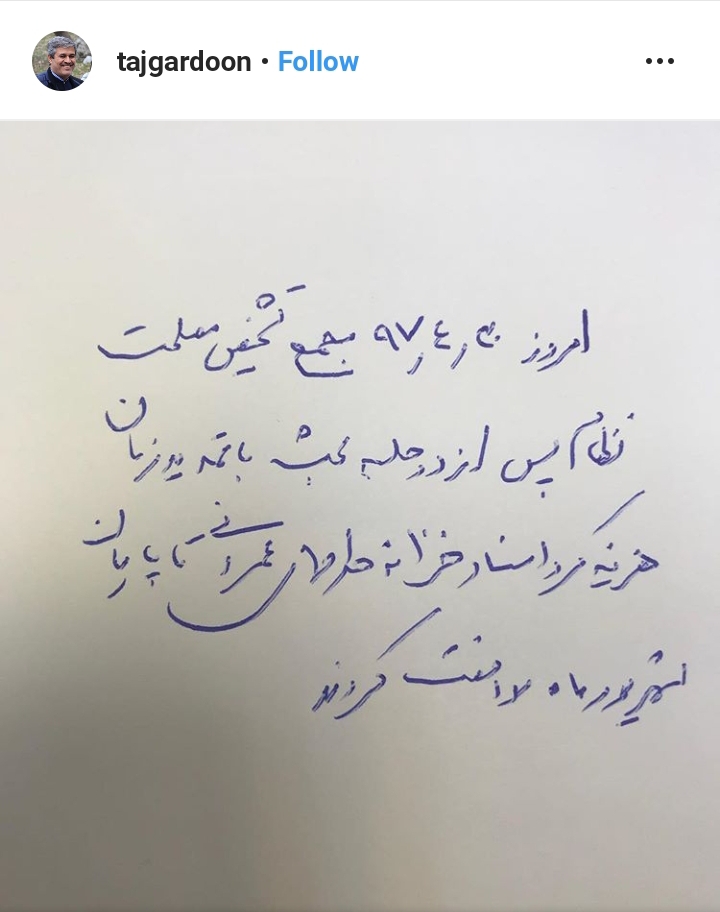 tajgardoon • Follow
امروز ۳۰ر٤ر۹۷ مجمع تشخیص مصلحت
نظام پس از دو جلسه بحث با تمدید زمان
هزینه کرد اسناد خزانه طرحهای عمرانی تا پایان
شهریور ماه موافقت کردند